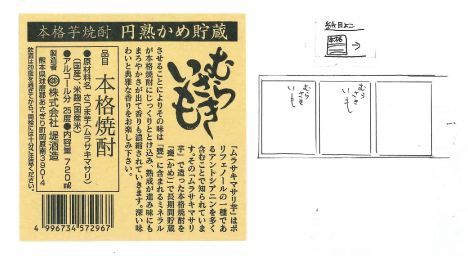 本格芋焼酎 円熟かめ貯蔵
むらさきいも
「ムラサキマサリ芋」はポ
リフェノールの一種であ
るアントシアニンを多く
含むことで知られていま
す。その「ムラサキマサリ
芋」で造った本格焼酎を
「甕(かめ)」で長期間貯蔵
させることによりその味は「甕」に含まれるミネラル
が本格焼酎にじっくりととけ込み、熟成が進み味にも
まろやかさが出て香りも濃縮されていきます。深い味
わいと典雅な香りをお楽しみ下さい。
品目 本格焼酎
●原材料名 さつま芋(ムラサキマサリ)
(国産)、米麹(国産米)
●アルコール分 25度●内容量 720㎖
製造者 株式会社 堤酒造
熊本県球磨郡あさぎり町岡原南390-4
飲酒は20歳を過ぎてから。開栓にはご注意ください。
4 996734 572967
紙目よこ
むらさきいも
むらさきいも